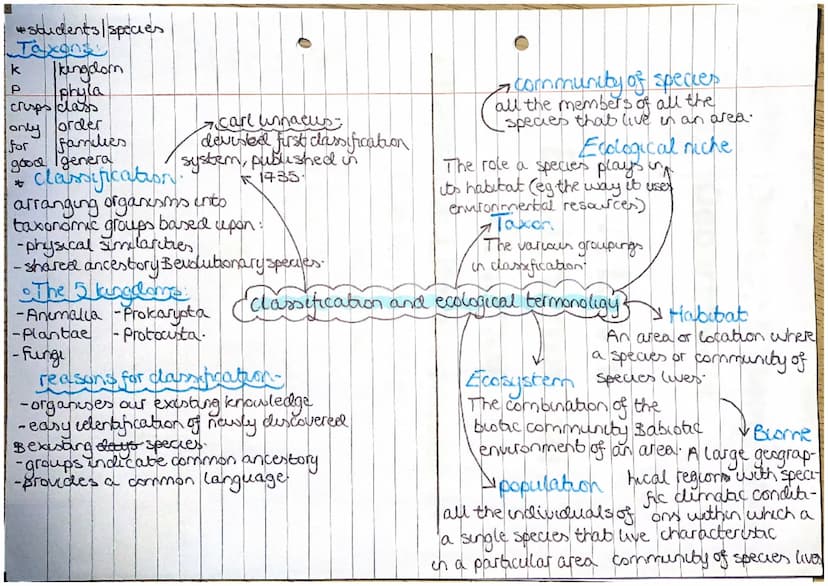 *students|species
Taxons:
K | kingdom
P | phyla
crisps | class
only | order
for | families
good | genera
* classification.
arranging organisms into
taxonomic groups based upon:
- physical similarities
- shared ancestory & evolutionary species.
The 5 kingdoms:
- Animalia - Prokaryota
- Plantae - Protoctista.
- Fungi
reasons for classification-
- organises our existing knowledge
- easy identification of newly discovered
& existing days species.
- groups indicate common ancestory
- provides a common language.
carl linnaeus-
devisted first classification
system, published in
1735.
classification and ecological termonoligy
community of species
all the members of all the
species that live in an area.
Ecological niche
The role a species plays in
its habitat (eg the way it uses
environmental resources)
Taxon
The various groupings
in classification.
Habitat
An area or location where
a species or community of
species lives.
Ecosystem
The combination of the
biotic community & abiotic
environment of an area.
Biome
A large geograp-
hical regions with speci-
fic climatic conditi-
ons within which a
characteristic
community of species live
population
all the individuals of
a single species that live
in a particular area